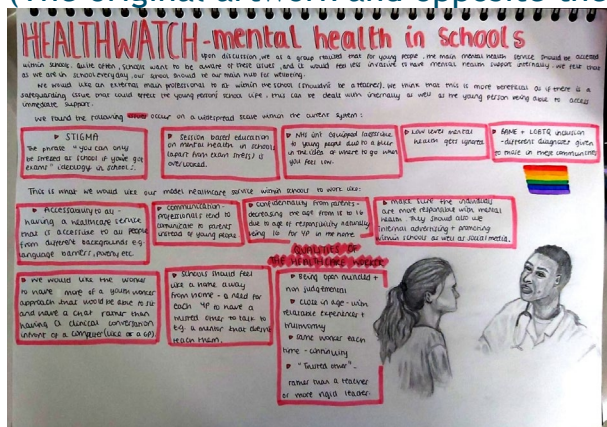 (The original artwork and opposite the
HEALTHWATCH - mental health in schools
upon discussion, we as a group realised that for young people, the main mental health service should be accessed
within school. Quite often, schools want to be aware of these issues, and it would feel less invasive to have mental health support internally. We felt that
as we are in school everyday, our school should be our main hub for wellbeing.
We would like an external main professional to sit within the school (shouldn't be a teacher). We think that this is more beneficial as if there is a
safeguarding issue that could effect the young persons school life, this can be dealt with internally as well as the young person being able to access
immediate support.
We found the following occur on a widespread scale within the current system:
STIGMA
The phrase "you can only
be stressed at school if you've got
exams" ideology in schools.
Session based education
on mental health in schools
(apart from exam stress) is
overlooked.
NHS isnt advertised
to young people due to a
in the idea of where to go when
you feel low.
Low level mental
health gets ignored
BAME + LGBTQ inclusion
- different diagnoses given
to those in these communities
This is what we would like our model healthcare service within schools to work like:
Accessability to all -
having a healthcare service
that is accessible to all people
from different backgrounds e.g.
language barriers, poverty etc.
Communication -
professionals tend to
comunicate to parents
instead of young people
Confidentiality from parents -
decreasing the age from 18 to 16
due to age of responsibility
being 16 for YP in the home
Make sure the individuals
are more responsible with mental
health. They should also use
internal advertising + promoting
within schools as well as social media.
QUALITIES OF
THE HEALTHCARE WORKER
We would like the worker
to have more of a youth worker
approach that would be able to sit
and have a chat rather than
having a clinical conversation
infront of a computer (like at a GP)
Schools should feel
like a home away
from home - a need for
each YP to have a
trusted other to talk to
e.g. a mentor that doesnt
teach them.
Being open minded +
non judgemental
Close in age - with
relatable experiences +
trustworthy
Same worker each
time - continuity
"Trusted other" -
rather than a teacher
or more rigid teacher.